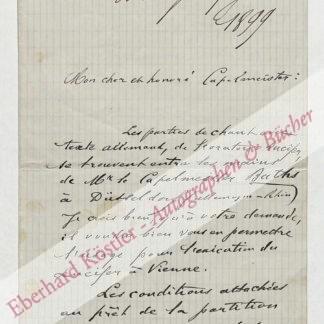 1899
Mon cher et honoré Capelmeister:
Les parties de chant avec
texte allemand, de l'oratorio Lucifer
se trouvent entre les mains
de Mr le Capelmeister Buths
à Düsseldorf
Je crois bien qu'à votre demande,
il voudra bien vous en permettre
l'usage pour l'exécution du
Lucifer à Vienne.
Les conditions attachées
au prêt de la partition
Eberhard Köstler - Autographen & Bücher